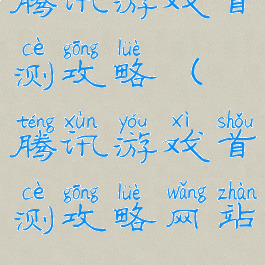 腾讯游戏首
cè gōng lüè
测攻略（
téng xùn yóu xì shǒu
腾讯游戏首
cè gōng lüè wǎng zhàn
测攻略网站